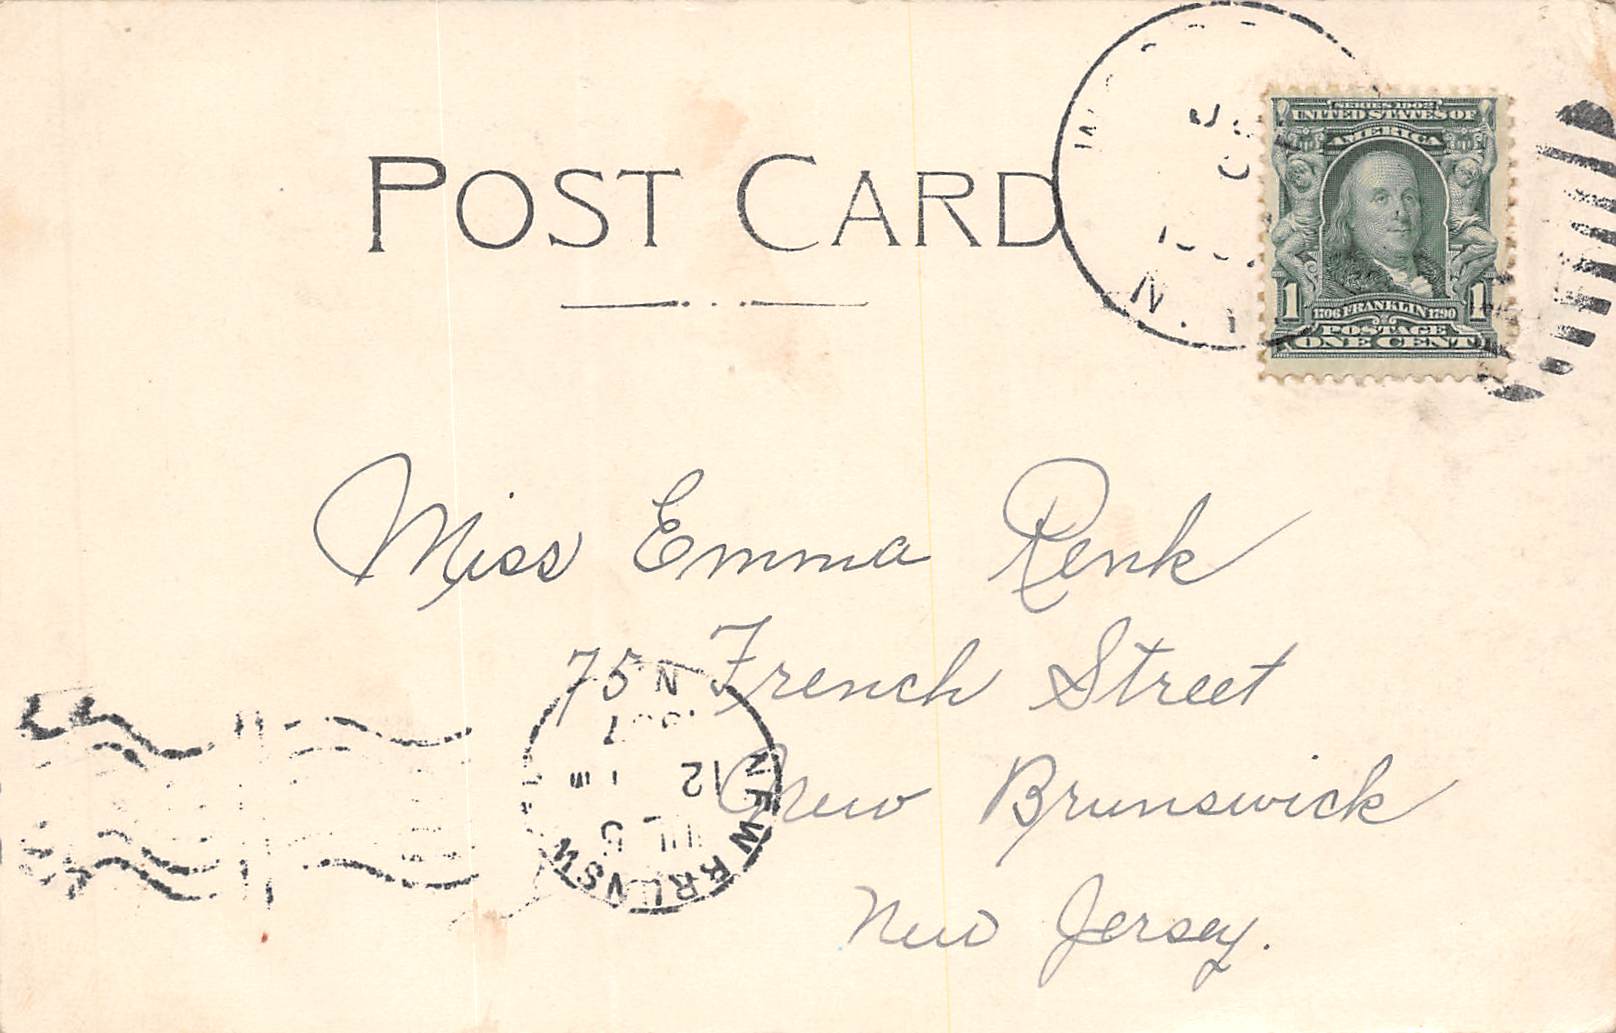 POST CARD
SERIES 1902
UNITED STATES OF
AMERICA
1 1706 FRANKLIN 1790 1
POSTAGE
ONE CENT
N.
Miss Emma Renk
75 French Street
New Brunswick
New Jersey.
N
1907
12
JUL 5
NEW BRUNSW